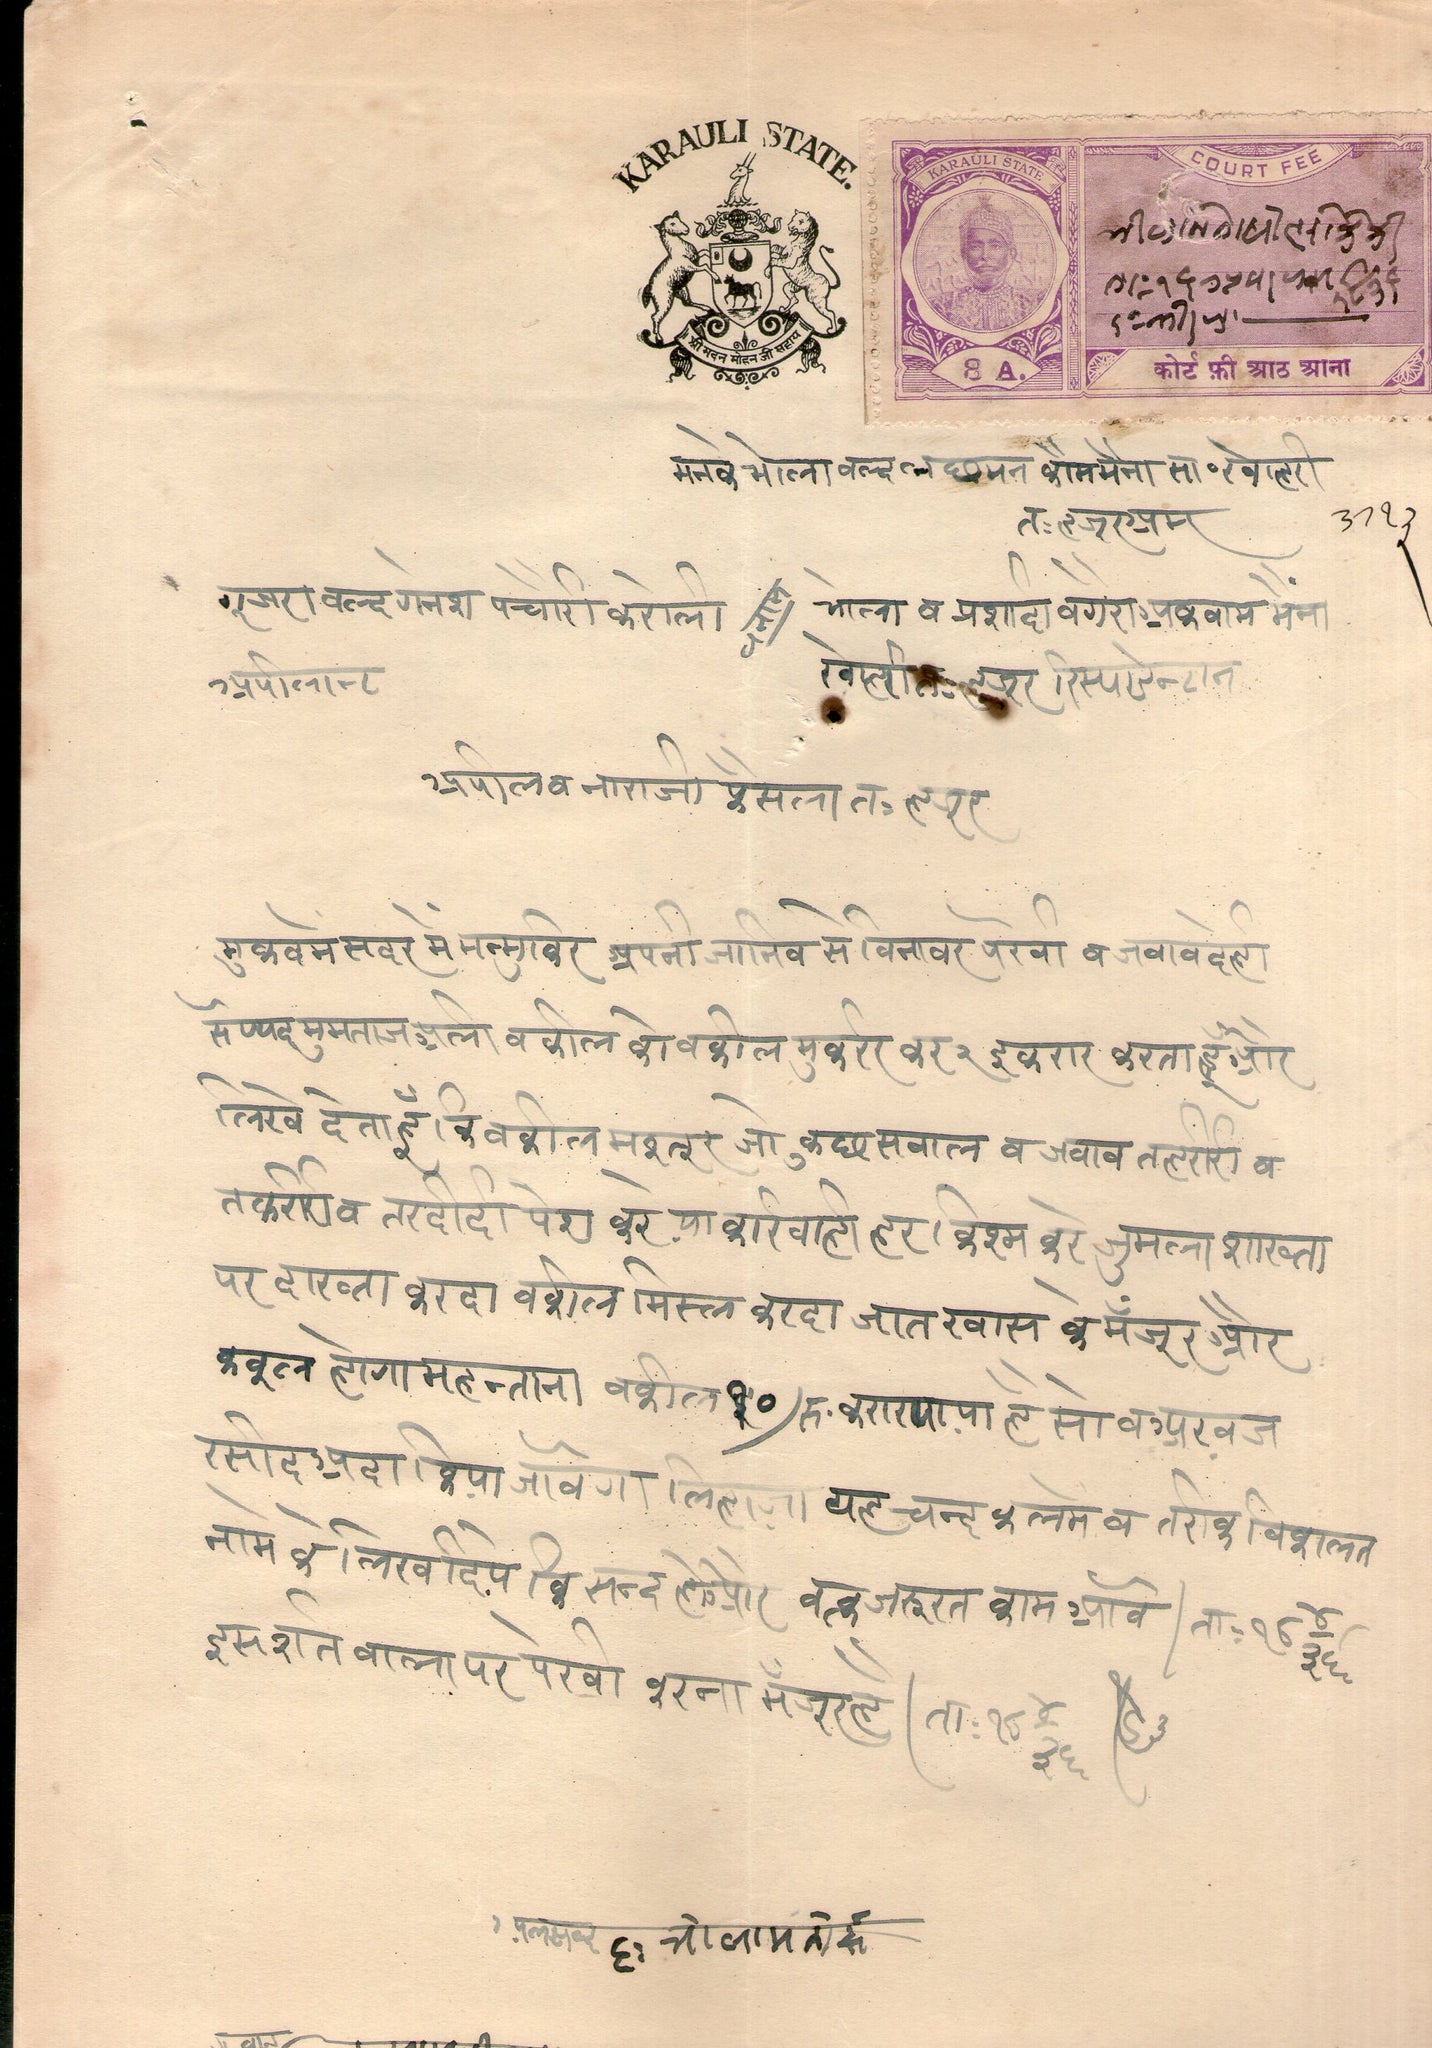 KARAULI STATE.
श्री मदन मोहन जी सहाय
KARAULI STATE
COURT FEE
8 A.
कोर्ट फ़ी आठ आना
मनके भोला वल्द लछमन कौम मैना सा॰ रवोहरी
त: हजूर
गूजरा वल्द गनेश पचौरी करोली बनाम भोला व प्रशादी वगैरा अकवाम मैना
अपीलान्ट
त: हजूर रिस्पाडेन्टान
अपील व नाराजी फैसला त: हजूर
मुकदमे सदर में मन्मुकिर अपनी जानिव से विनावर पैरवी व जवाव देही
सैय्यद मुमताज अली वकील को वकील मुकर्रर कर २ इकरार करता हूँ और
लिखे देता हूँ कि वकील मशहूर जो कुछ सवाल व जवाव तहरीरी व
तकरीरी व तरदीदी पेश करे या कारवाही हर किश्म करे जुमला शाख्ता
परदाख्ता करदा वकील मिस्ल करदा जात खास के मँजूर और
कबूल होगा महन्ताना वकील रु. करार पाया है सो
रसीद अदा किया जावेगा लिहाजा यह चन्द कलमे व तरीक विकालत
नामे के लिखदिये कि सन्द हो और वक्त जरूरत काम आवे। ता: १८
इस शर्त वाला पर पैरवी करना मँजूर है। ता: १८
अलअव्द द: